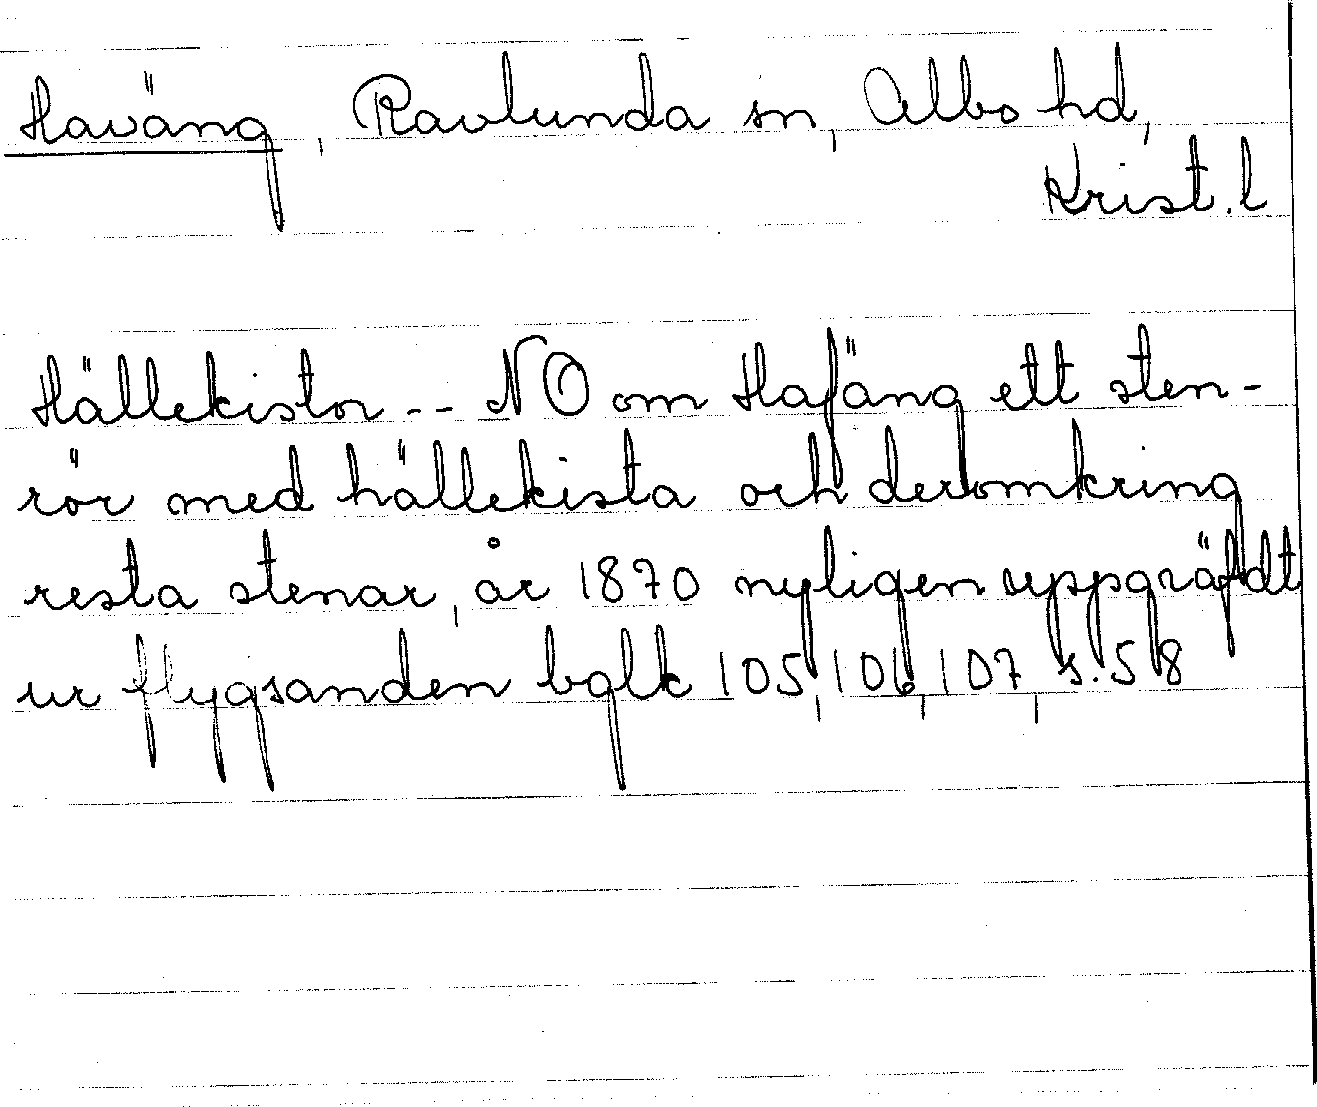 Haväng, Ravlunda sn, Albo hd,
Krist. l
Hällekistor -- NO om Hafäng ett sten-
rör med hällekista och deromkring
resta stenar, år 1870 nyligen uppgräfdt
ur flygsanden bglk 105, 106, 107 s. 58